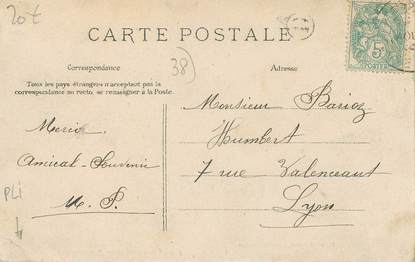 20t
CARTE POSTALE
38
Correspondance
Tous les pays étrangers n'acceptent pas la
correspondance au recto, se renseigner à la Poste.
Merci
Amical Souvenir
M. P.
PLI
Adresse
Monsieur Barioz
Humbert
7 rue
Lyon
5c
POSTES